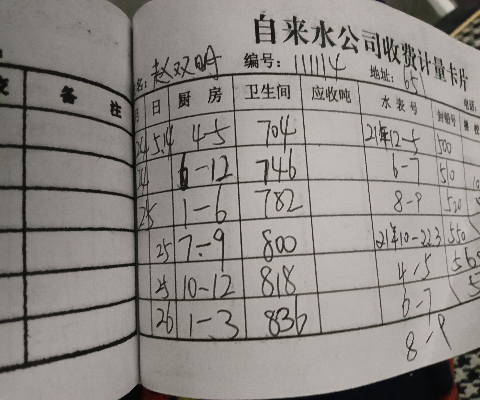 自来水公司收费计量卡片
名: 赵双明 编号: 111114 地址: 651 电话:
备注
月 日 厨房 卫生间 应收吨 水表号 封铅号
24 5.14 4-5 704 21年12-5 500
24 6-12 746 6-7 510
25 1-6 782 8-9 520
25 7-9 800 21年10-22.3 550
25 10-12 818 4-5
26 1-3 836 6-7
8-9